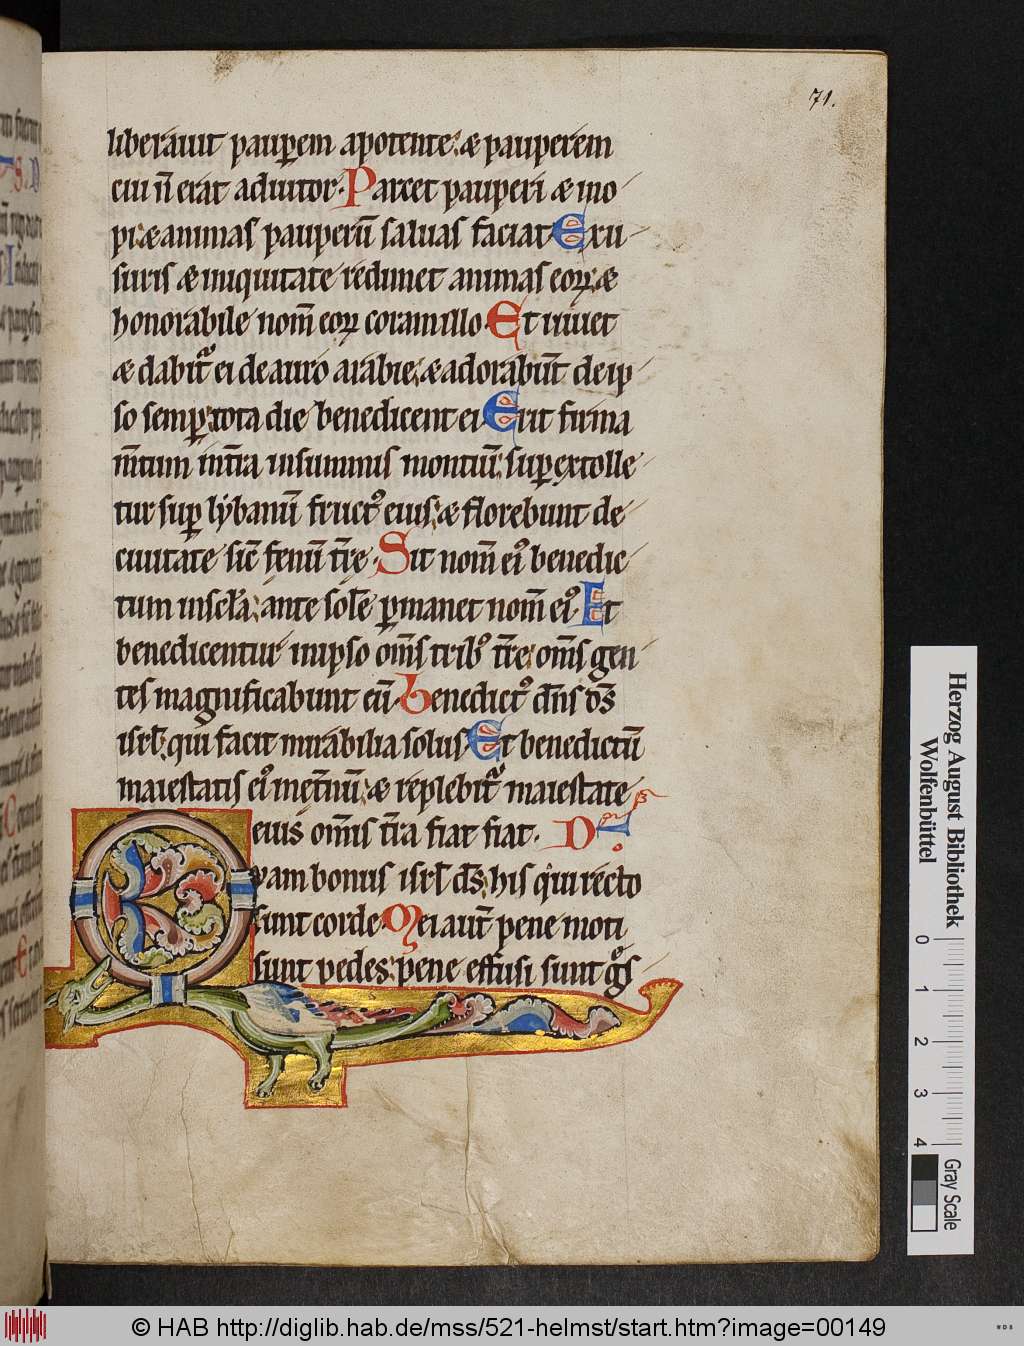 71.
liberauit paup̲em apotente: & pauperem
cui n̄ erat adiutor. Parcet pauperi & ino
pi: & animas pauperū saluas faciat. Exu
suris & iniquitate redimet animas eoꝝ: &
honorabile nom̄ eoꝝ coram illo. Et uiuet
& dabit᷑ ei de auro arabie: & adorabūt de ip
so semꝑ: tota die benedicent ei. Erit firma
m̄tum int̄ra insummis montiū: suꝑextolle
tur suꝑ lybanū fructꝰ eius: & florebunt de
ciuitate sic̄ fenū t̄re. Sit nom̄ eiꝰ benedic
tum insc̄la: ante sole̅ ꝑmanet nom̄ eiꝰ. Et
benedicentur inipso om̄s tribꝰ t̄re: om̄s gen
tes magnificabunt eū. Benedictꝰ dn̄s ds̄
isrl̄: qui facit mirabilia solus. Et benedictū
maiestatis eiꝰ inet̄nū: & replebit᷑ maiestate
eius om̄is t̄ra fiat fiat. ps
Quam bonus isrl̄ ds̄: his qui recto
sunt corde. Mei aut̄ pene moti
sunt pedes: pene effusi sunt gͦs
Herzog August Bibliothek
Wolfenbüttel
0 1 2 3 4
Gray Scale
© HAB http://diglib.hab.de/mss/521-helmst/start.htm?image=00149